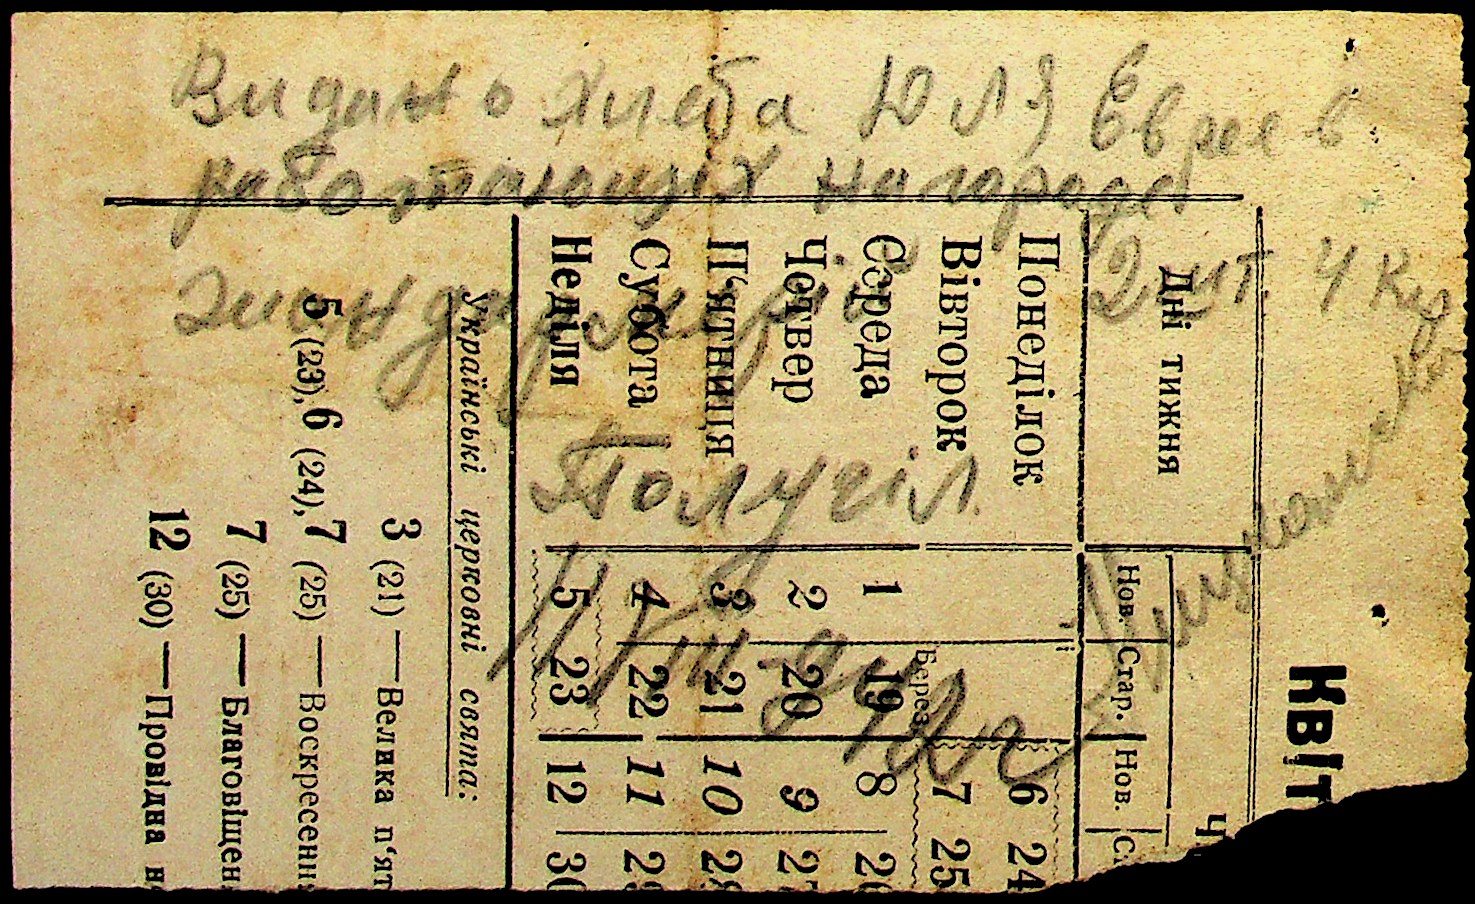 Видано хлеба Для Евреев
работающих на городе
2 шт. 4
Квіт
Дні тижня Нов. Стар. Нов.
Понеділок 6 24
Вівторок 7 25
Берез
Середа 1 19 8 26
Четвер 2 20 9 27
П'ятниця 3 21 10 28
Субота 4 22 11 29
Неділя 5 23 12 30
Українські церковні свята:
3 (21) — Велика п'ят
5 (23), 6 (24), 7 (25) — Воскресенн
7 (25) — Благовіщен
12 (30) — Провідна н